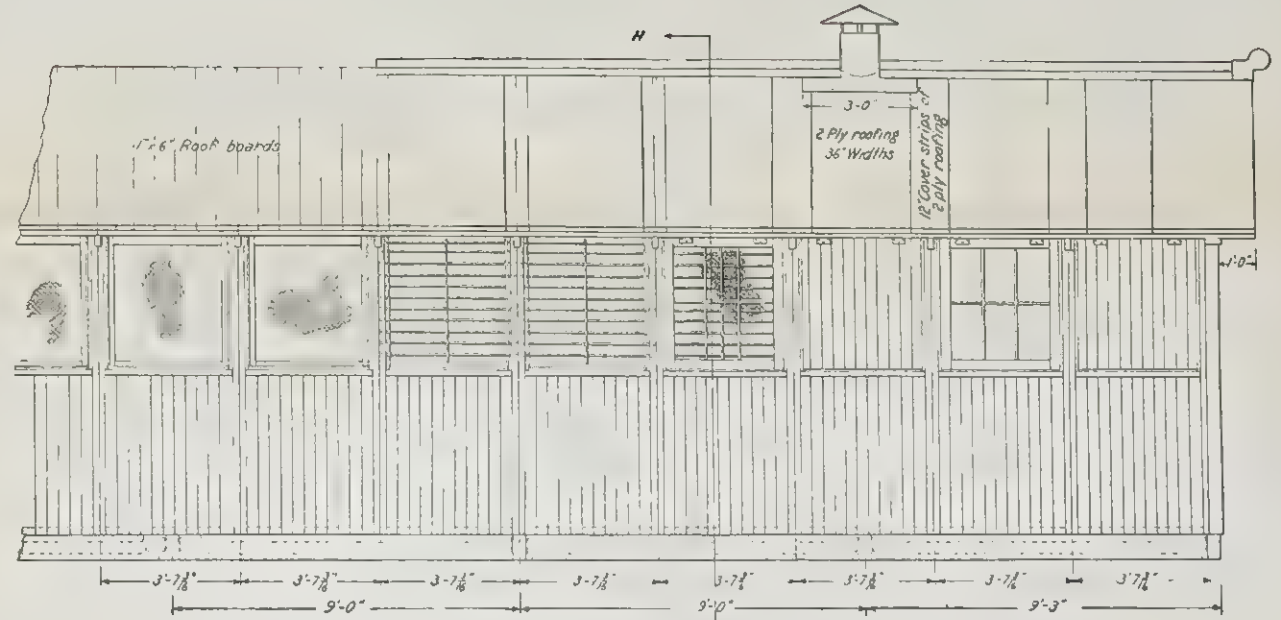 H
1"x6" Roof boards
3'-0"
2 Ply roofing
36" Widths
12" Cover strips of
2 ply roofing
1'-0"
3'-7 3/16" 3'-7 3/16" 3'-7 3/16" 3'-7 3/16" 3'-7 3/16" 3'-7 3/16" 3'-7 3/16" 3'-7 3/16"
9'-0" 9'-0" 9'-3"